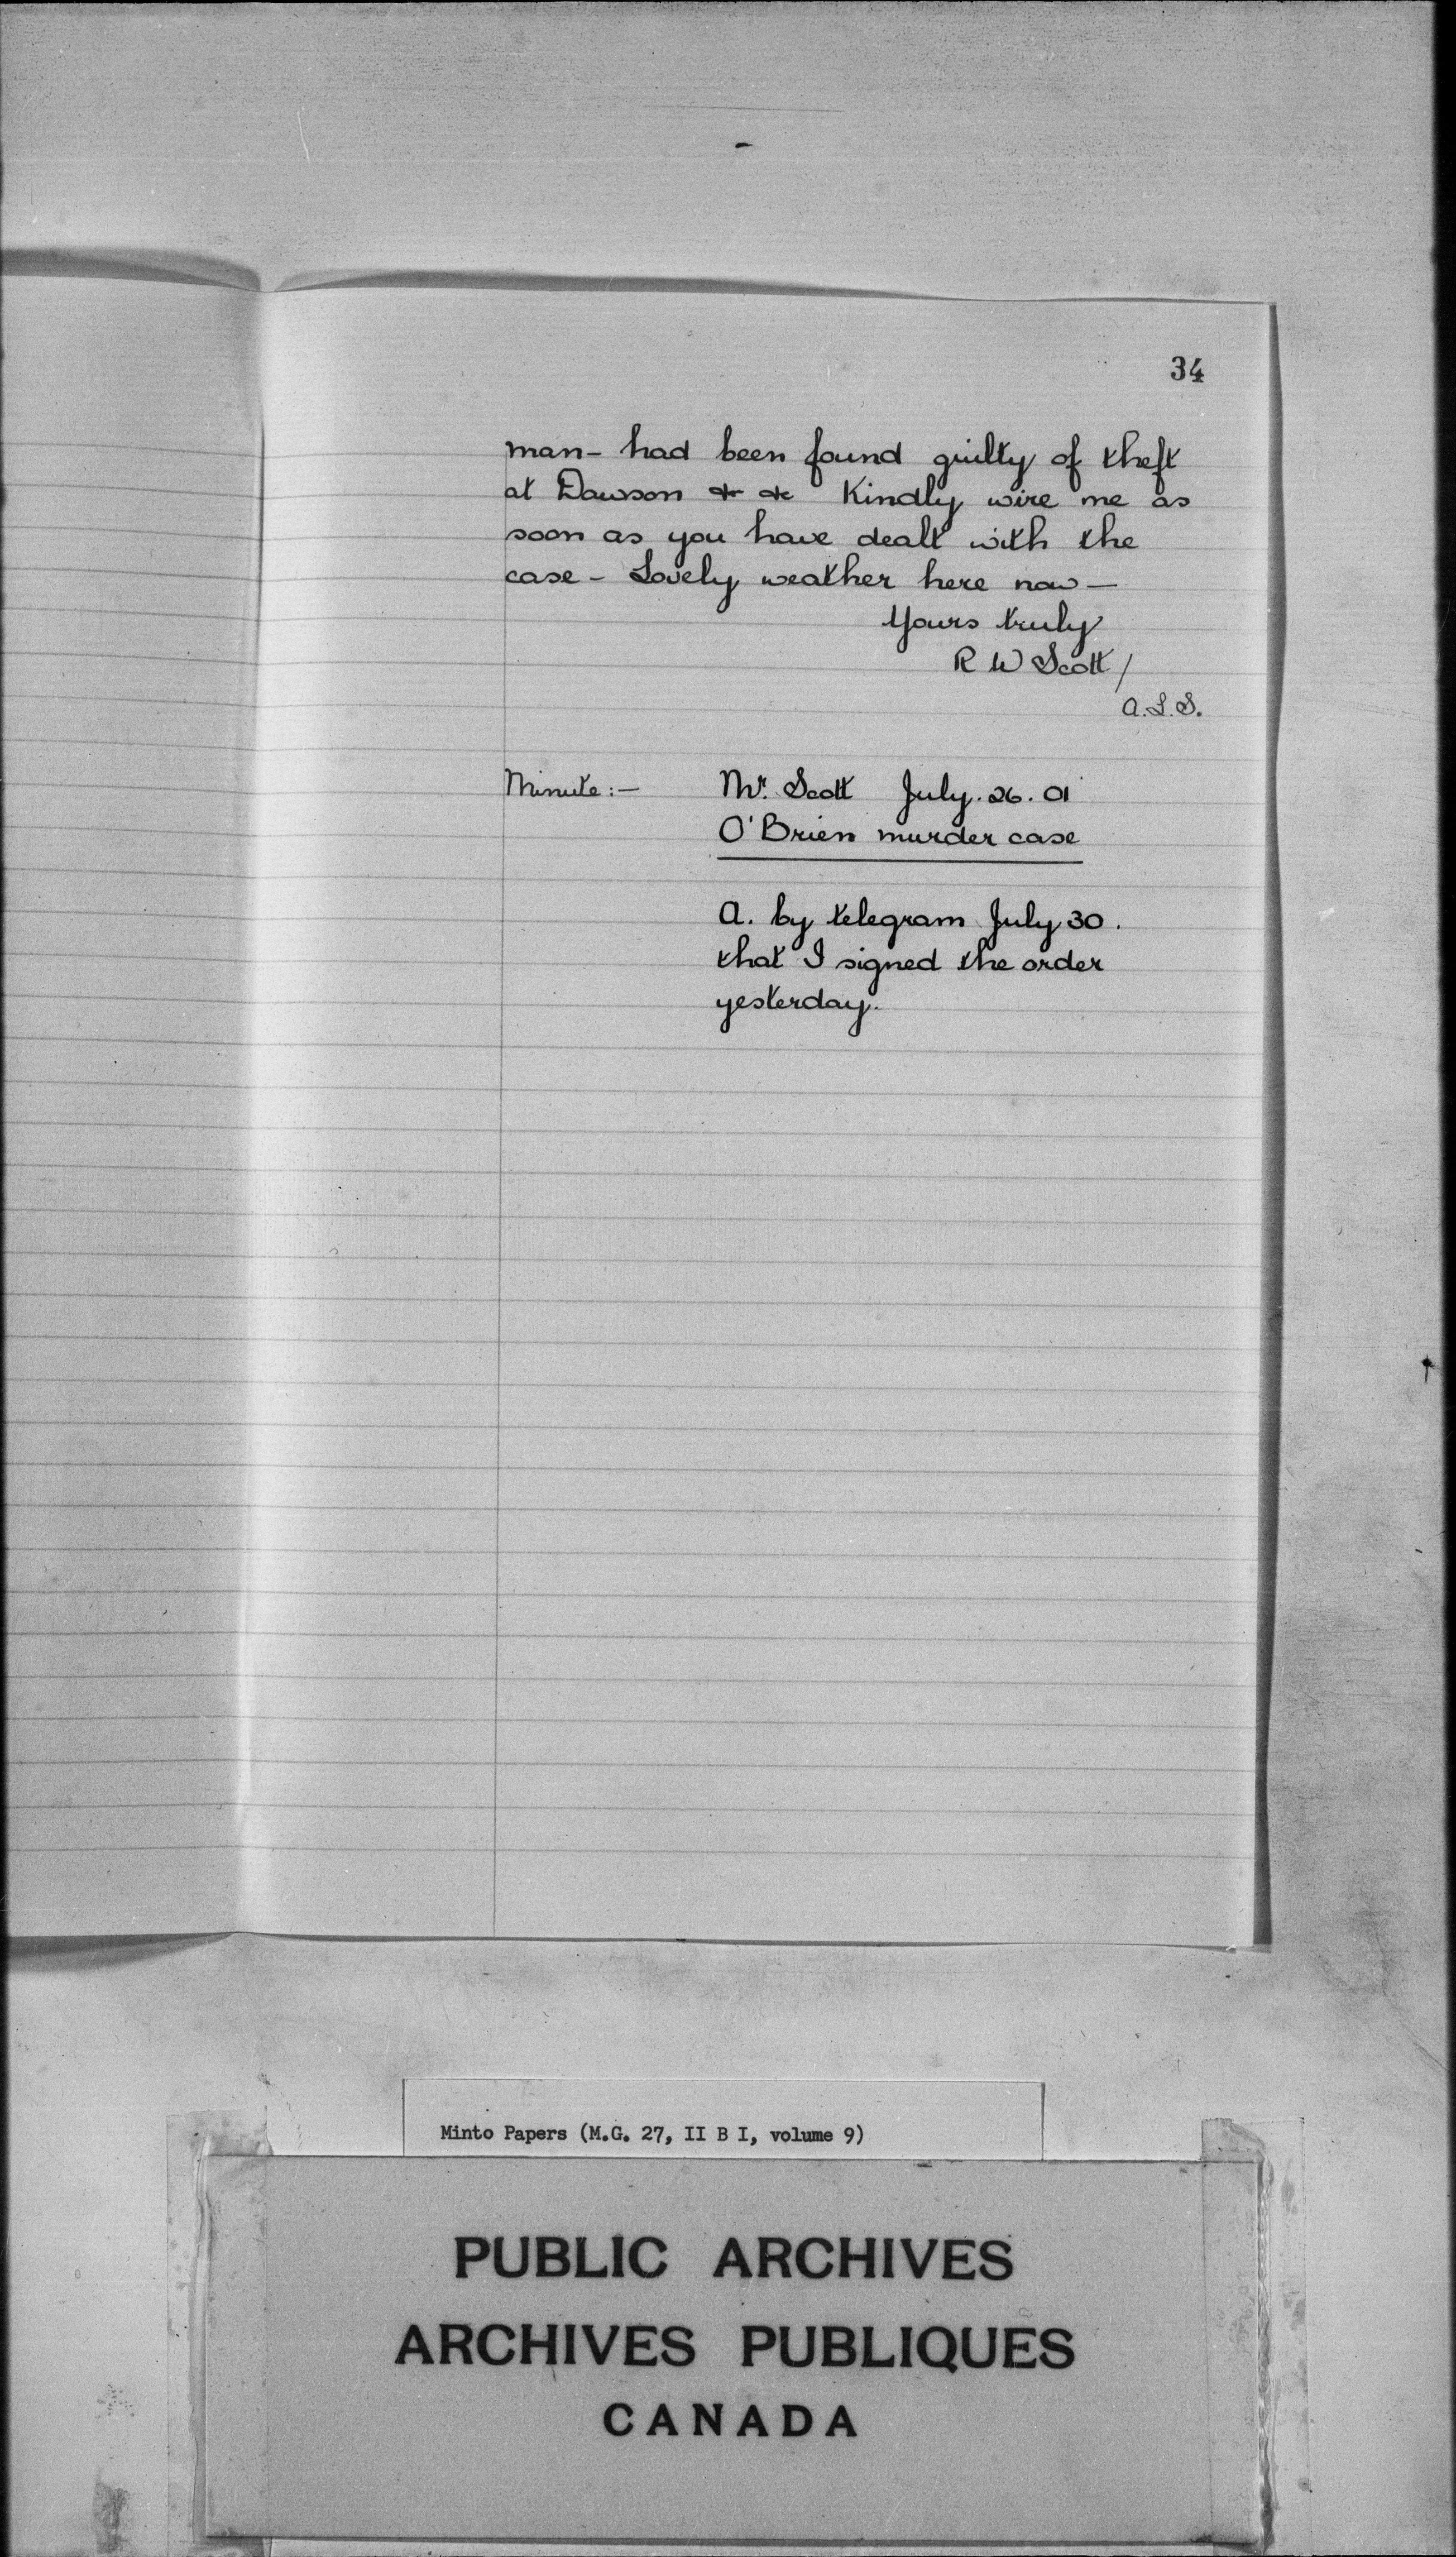 34
man- had been found guilty of theft
at Dawson &c &c Kindly wire me as
soon as you have dealt with the
case - Lovely weather here now -
Yours truly
R W Scott/
A.L.S.
Minute:- Mr. Scott July. 26. 01
O'Brien murder case
A. by telegram July 30.
that I signed the order
yesterday.
Minto Papers (M.G. 27, II B I, volume 9)
PUBLIC ARCHIVES
ARCHIVES PUBLIQUES
CANADA